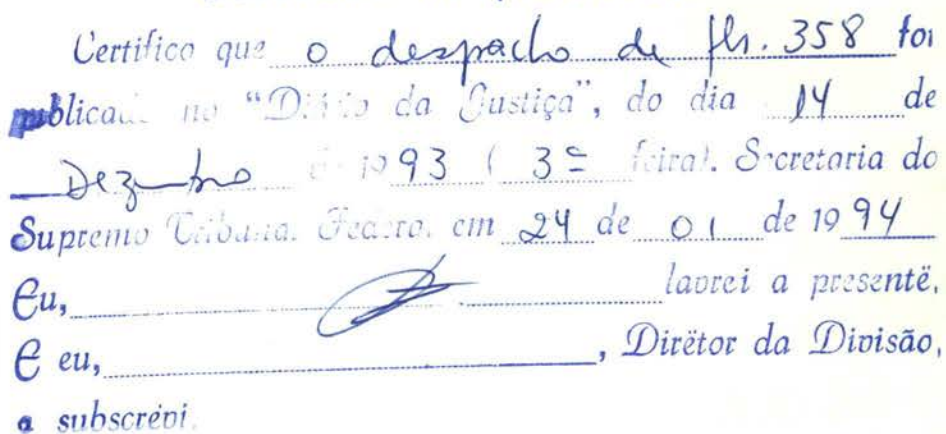 Certifico que o despacho de fls. 358 foi
publicado no "Diário da Justiça", do dia 14 de
Dezembro de 1993 (3ª feira). Secretaria do
Supremo Tribunal Federal, em 24 de 01 de 1994
Eu, lavrei a presentë,
E eu, , Dirëtor da Divisão,
a subscrëvi.